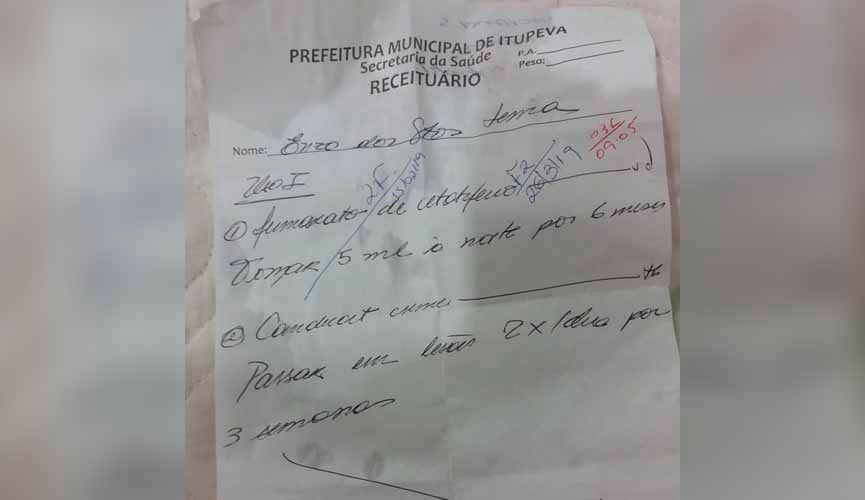 PREFEITURA MUNICIPAL DE ITUPEVA
Secretaria da Saúde
RECEITUÁRIO
P.A.
Peso:
Nome: Enzo dos Stos
Uso I
2F. 15/02/19
F2 26/3/19
036 09.05
① fumarato de cetotifeno
Tomar 5 ml à noite por 6 meses
② Candicort creme tb
Passar em lesão 2x/dia por
3 semanas